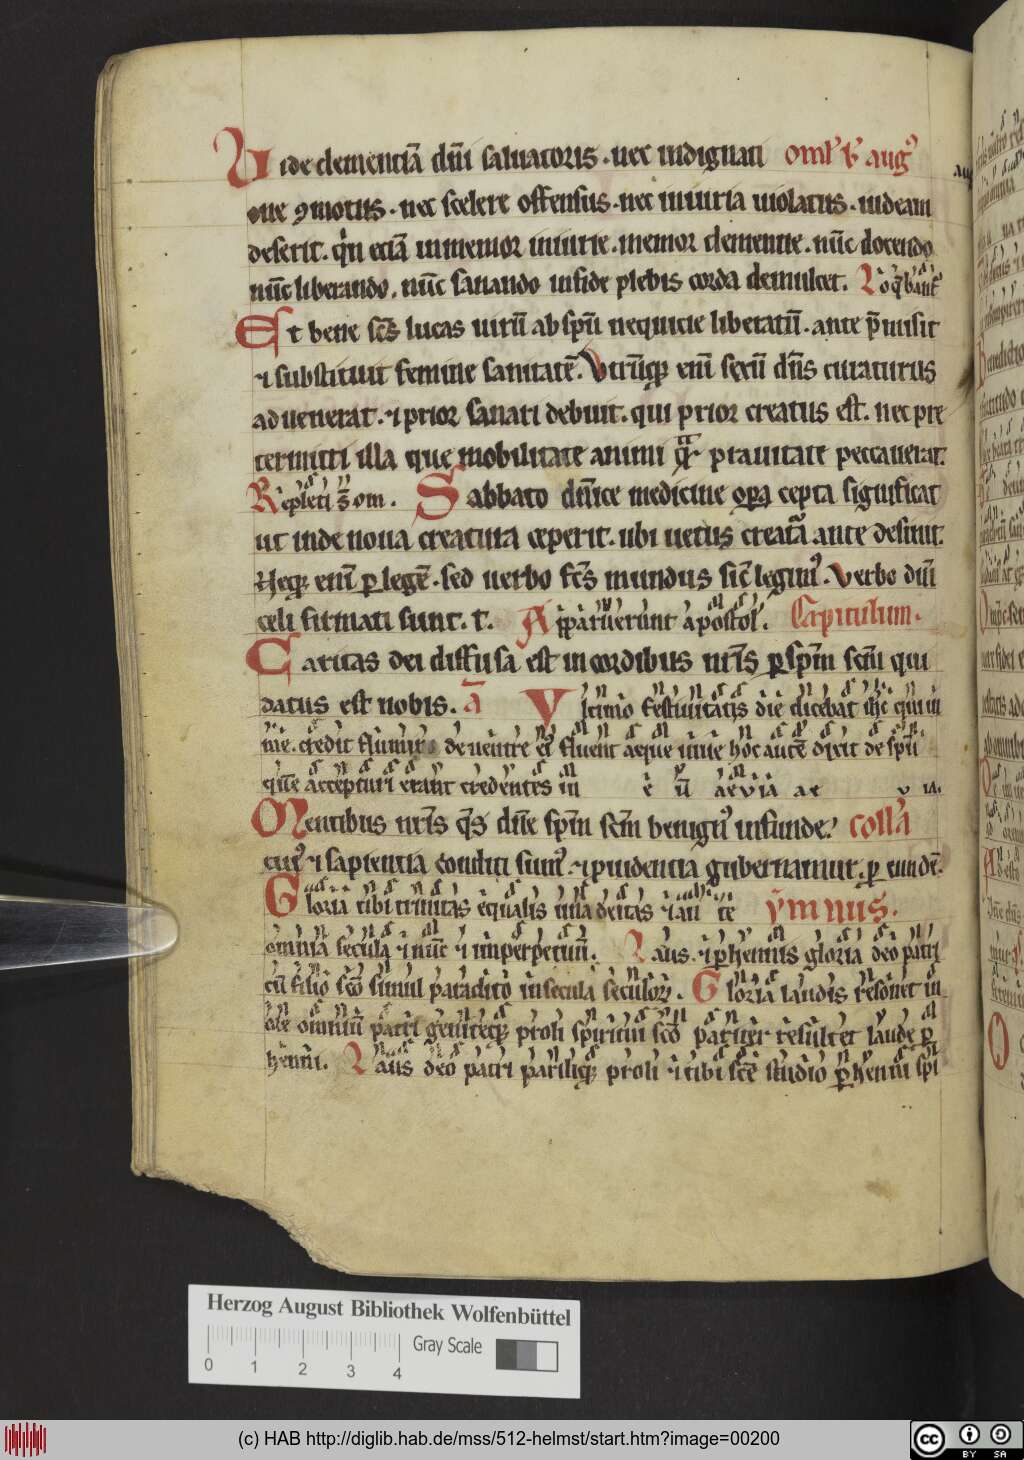 Uide clementiā dn̄i saluatoris · nec indignati oml' b' aug⁹
one ꝯmotus · nec scelere offensus · nec iniuria uiolatus · iudeam
deserit. q̇n eciā inmemor iniurie · memor clementie. nūc docendo
nūc liberando. nūc sanando infide plebis corda demulcet. Loq̄bāt̄
Et bene sc̄s lucas uirū ab spū nequicie liberatū. ante p̄misit
⁊ substituit femine sanitatē. Vtrūq; enī sexū dn̄s curaturus
aduenerat. ⁊ prior sanari debuit. qui prior creatus est. nec pre
termitti illa que mobilitate animi q̄ prauitate peccauerat.
Repleti s̄ om. Sabbato dn̄ice medicine oꝑa cepta significat
ut inde noua creatura ceperit. ubi uetus creatā ante desinit.
Neq; enī ꝑ legē. sed uerbo fc̄s mundus sic̄ legim⁹. Verbo dn̄i
celi firmati sunt. r. Apparuerunt apostol'. Capitulum.
Caritas dei diffusa est in cordibus nr̄is ꝑ spm̄ scm̄ qui
datus est nobis. ā Vltimo festiuitatis die dicebat ihc̄ qui in
me. credit flumina de uentre ei⁹ fluent aque uiue hoc autē dixit de spū
quē accepturi erant credentes in e ū aevia ae v ia.
Mentibus nr̄is q̄s dn̄e spm̄ scm̄ benignꝰ infunde. collā
cuiꝰ ⁊ sapientia conditi sumꝰ. ⁊ ꝓuidentia gubernamur. ꝑ eundē.
Gloria tibi trinitas equalis una deitas ⁊ an te ymnus.
omnia secula ⁊ nūc ⁊ imperpetuū. Laus. ⁊ ꝑhennis gloria deo patri
cū filio scō simul paraclito in secula seculoꝝ. Gloria laudis resonet in
ore omniū patri geniteq; proli spiritui scō pariter resultet laude ꝑ
henni. Laus deo patri pariliq; proli ⁊ tibi scē studio ꝑhenni spi
Herzog August Bibliothek Wolfenbüttel
Gray Scale
0 1 2 3 4
(c) HAB http://diglib.hab.de/mss/512-helmst/start.htm?image=00200
cc BY SA